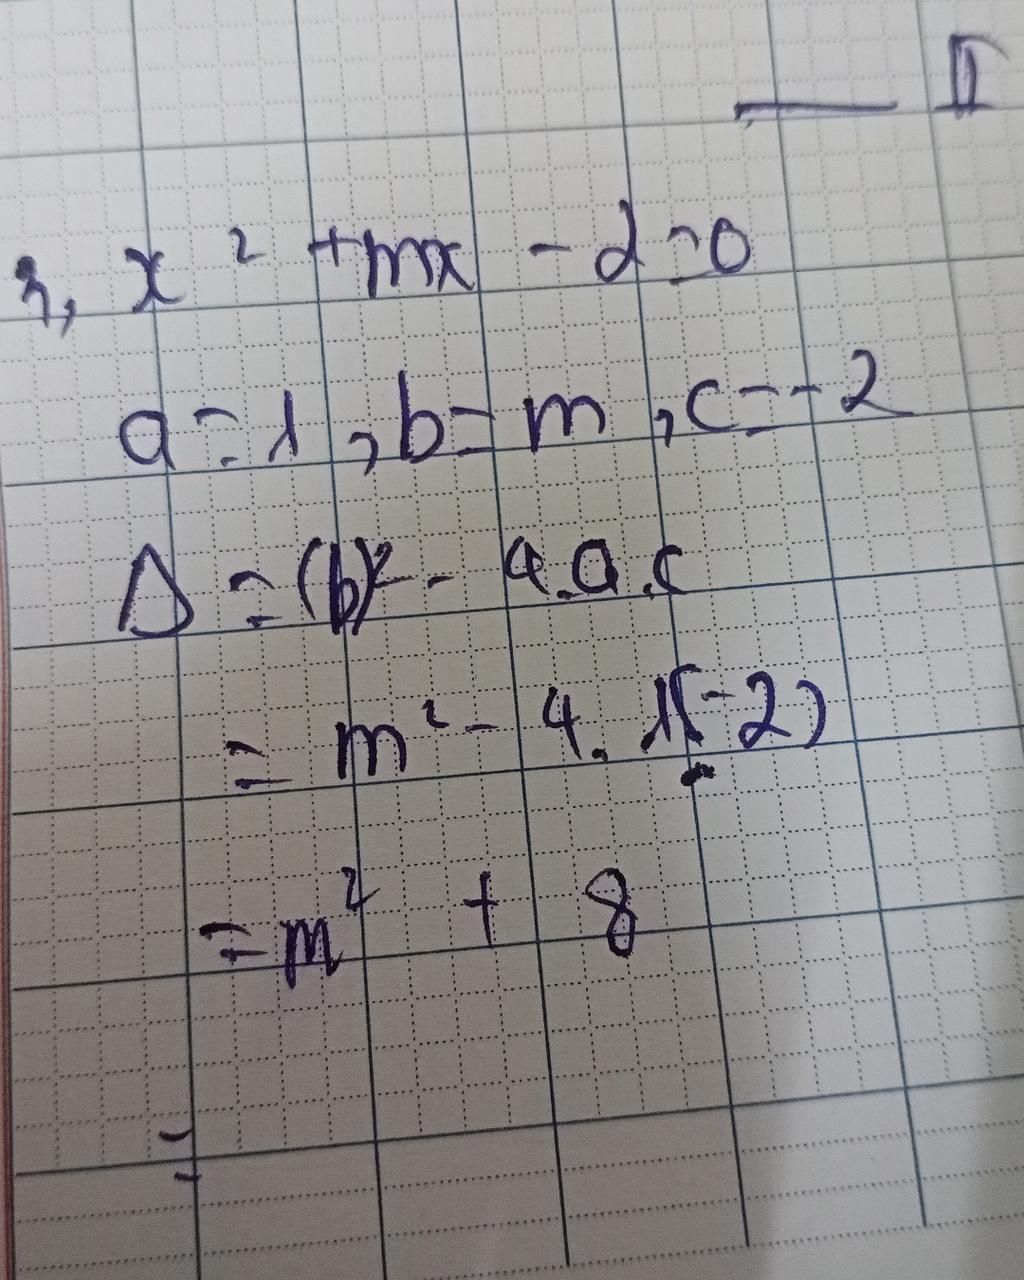 3, x² + mx - 2 = 0
a = 1, b = m, c = -2
Δ = (b)² - 4.a.c
= m² - 4.1(-2)
= m² + 8
=